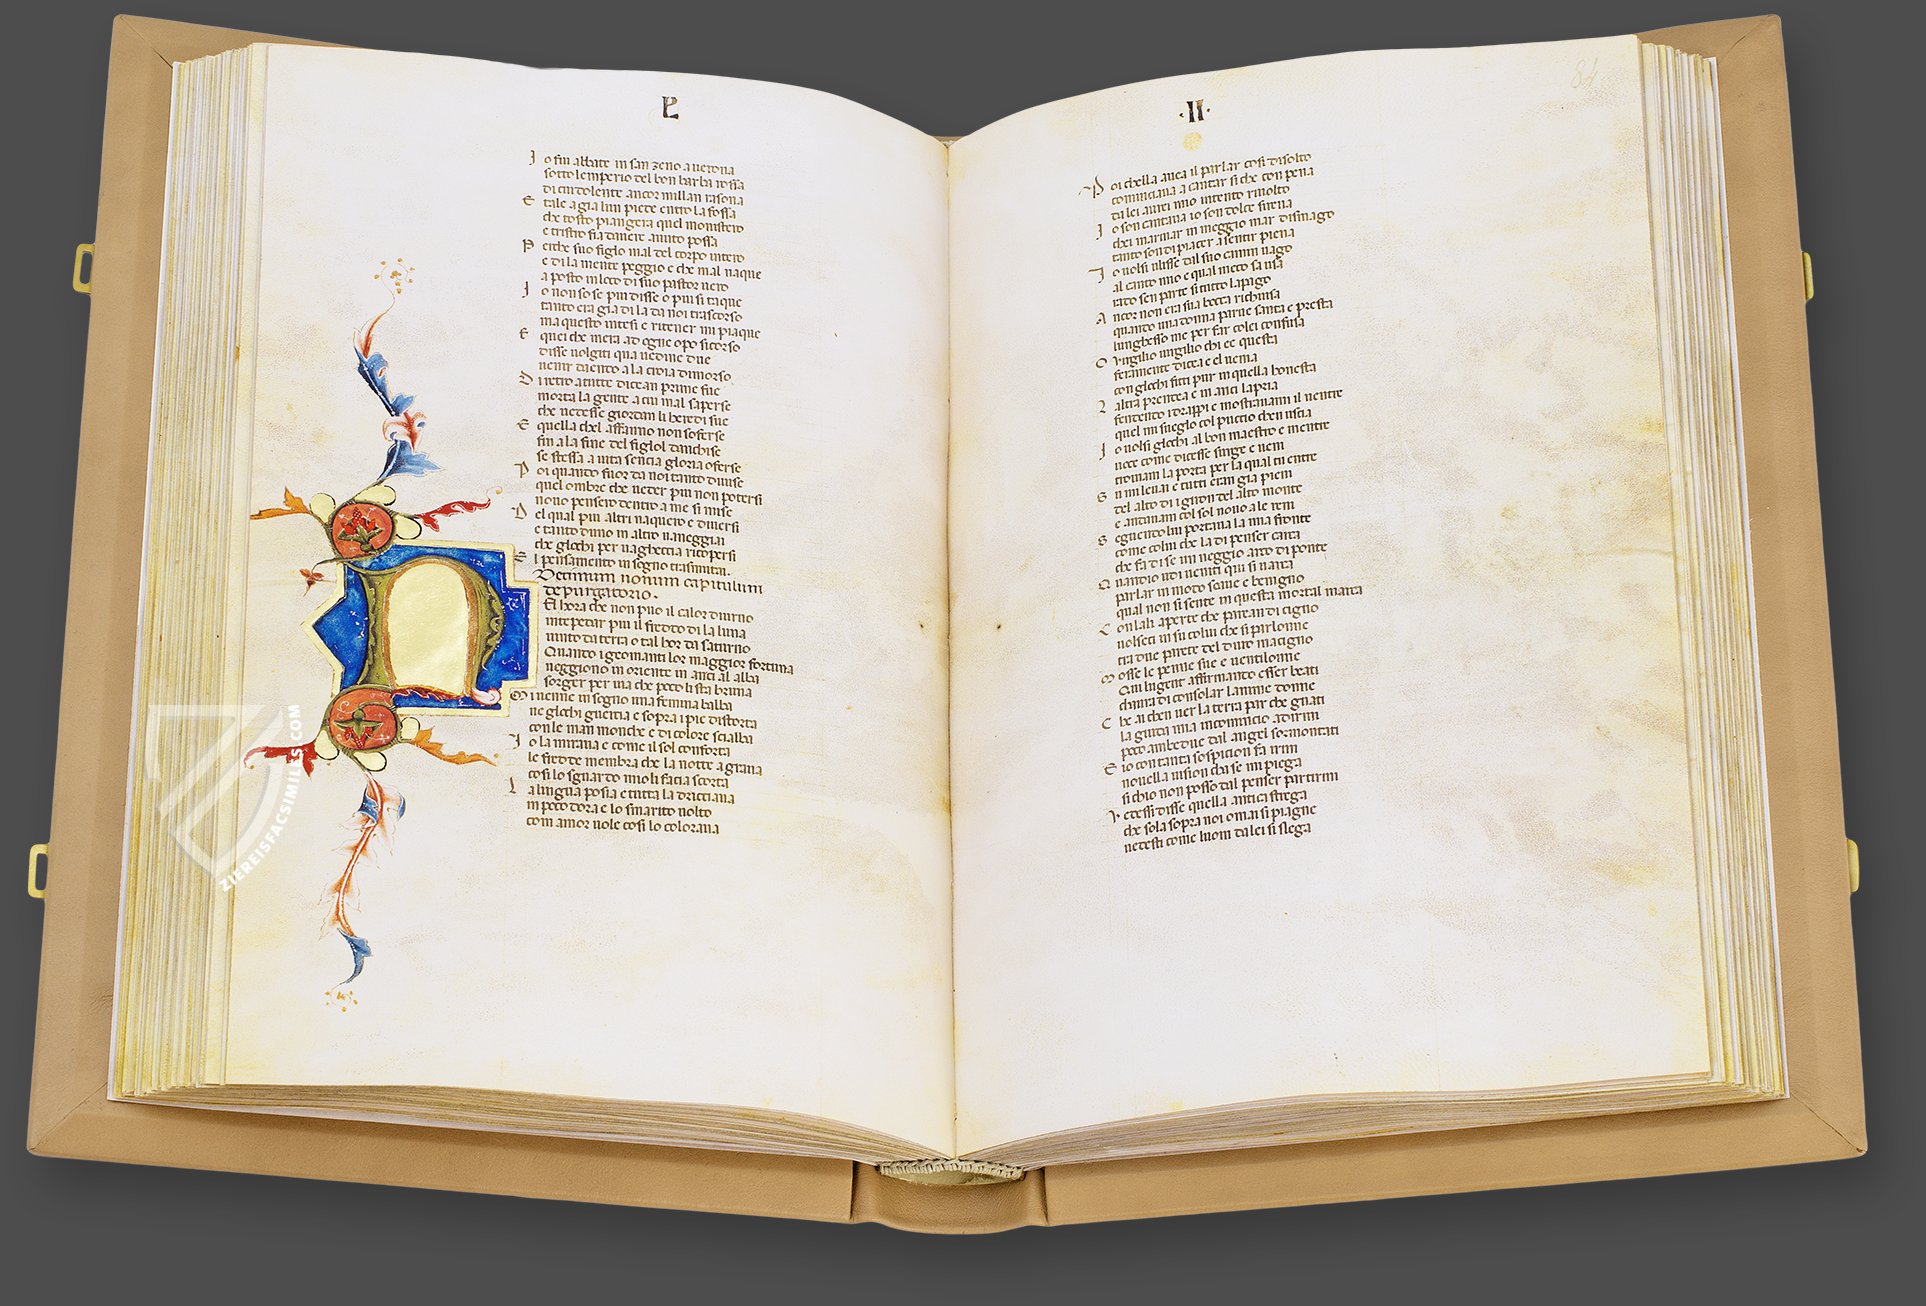 P
I o fui abbate in san zeno a uerona
sotto lemperio del bon barba rossa
di cui dolente ancor millan rasona
E tale a gia lun piete entro la fossa
che tosto piangera quel monisterio
e tristo fia dauere auuto possa
P erche suo figlo mal del corpo intero
e di la mente peggio e che mal naque
a posto in loco di suo pastor uero
I o non so se piu disse o piu si taque
tanto era gia di la da noi trascorso
ma questo intesi e ritener mi piaque
E quei che mera ad ogne opo socorso
disse uolgiti qua uedine due
uenir dicento a la cidia di morso
D i retro a tutte dicean prime fue
morta la gente a cui mal saperse
che uedesse giordan li heredi sue
E quella chel affanno non soferse
fin a la fine del figiol danchise
se stessa a uita sencia gloria oferse
P oi quando fuor da noi tanto diuise
quel ombre che ueder piu non potersi
nouo pensero dentro a me si mise
D el qual piu altri naquero e diuersi
e tanto duno in altro uaneggiai
che glochi per uaghecia ricopersi
E l pensamento in sogno trasmutai.
Decimum nonum capitulum
de purgatorio.
El hora che non puo il calor diurno
intepedar piu il freddo di la luna
uinto da terra o talhor da saturno
Quando i geomanti lor maggior fortuna
ueggiono in oriente in anci al alba
sorger per uia che poco li sta bruna
M i uenne in sogno una femina balba
ne glochi guercia e sopra i pie distorta
con le man monche e di colore scialba
I o la miraua e come il sol conforta
le fredde membra che la notte agraua
cosi lo sguardo mio li facia scorta
L a lingua posia e tutta la dricciaua
in poco dora e lo smarito uolto
com amor uole cosi lo coloraua
.II.
81
P oi chella auea il parlar cosi disolto
cominciaua a cantar si che con pena
da lei aurei mio intento riuolto
I o son cantaua io son dolce sirena
chei marinar in meggio mar dismago
tanto son di piacer a sentir piena
I o uolsi ulisse dal suo camin uago
al canto mio e qual meco sa usa
rado sen parte si tutto lapago
A ncor non era sua bocca richiusa
quando una donna parue santa e presta
lunghesso me per far colei confusa
O uirgilio uirgilio chi ee questa
feramente dicea e el uenia
con glochi fitti pur in quella honesta
L altra prendea e in anci lapria
fendendo i drappi e mostrauami il uentre
quel mi sueglo col puccio chen uscia
I o uolsi glochi al bon maestro e mentre
uoce come dicesse surge e ueni
trouiam la porta per la qual tu entre
S u mi leuai e tutti eran gia pieni
del alto di i giron del alto monte
e andauam col sol nouo a le reni
S eguendo lui portaua la mia fronte
come colui che la di penser carca
che fa di se un meggio arco di ponte
Q uandio udi ueniti qui si uarca
parlar in modo soaue e benigno
qual non si sente in questa mortal marca
C on lali aperte che parean di cigno
uolseci in su colui che si parlonne
tra due parete del duro macigno
M osse le penne sue e uentilonne
Qui lugent affirmando esser beati
chaura di consolar lanime donne
C he ai chen uer la terra par che guati
la guida mia incomincio a dirmi
poco ambedue dal angel sormontati
E io con tanta sospicion fa irmi
nouella uision cha se mi piega
si chio non posso dal penser partirmi
V edessi disse quella antica strega
che sola sopra noi omai si piagne
uedesti come luom da lei si slega
ZIEREISFACSIMILES.COM